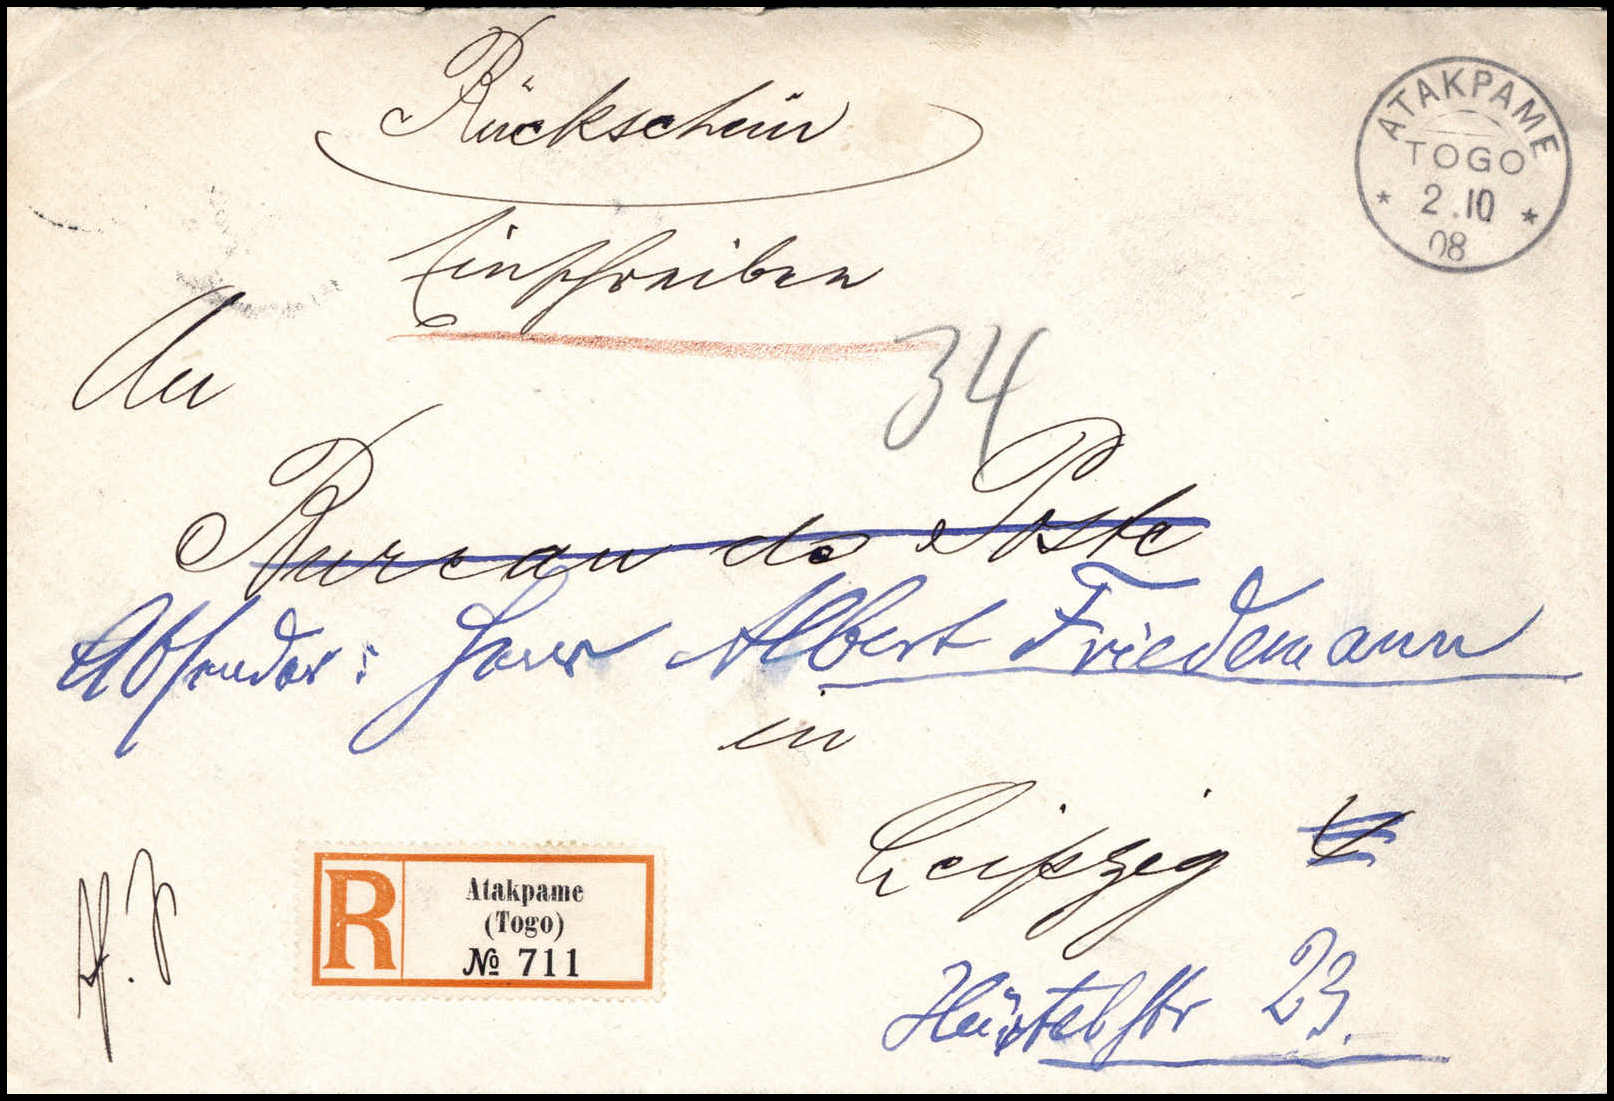 Rückschein
ATAKPAME
TOGO
2.10
08
Einschreiben
34
An
Bureau de Poste
Absender: Herr Albert Friedemann
in
Leipzig
R
Atakpame
(Togo)
№ 711
23.